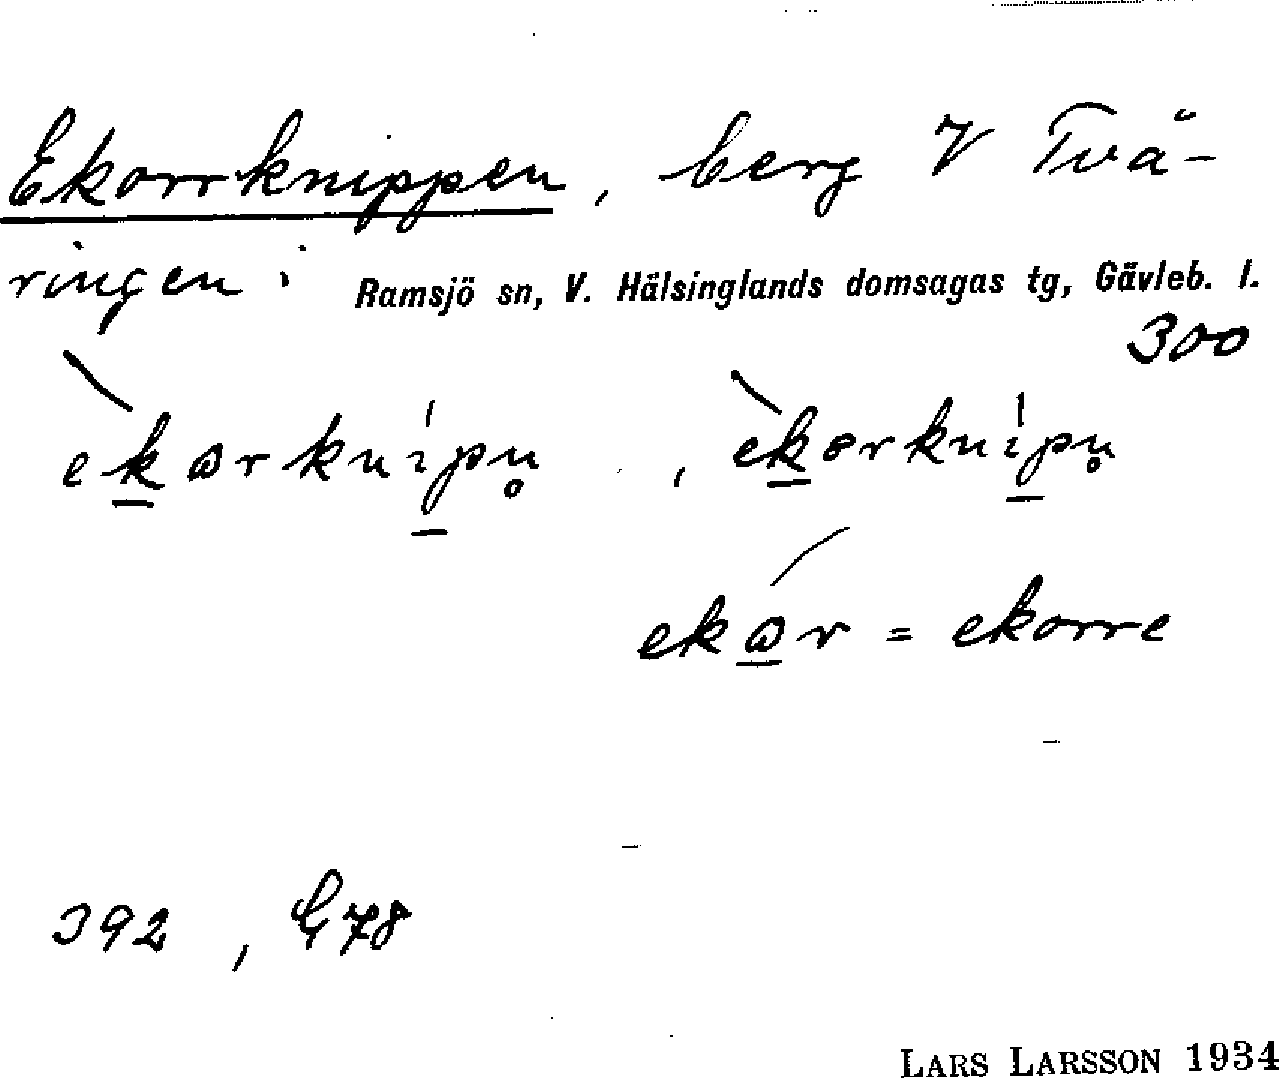 Ekorrknippen, berg V Tvä-
ringen i Ramsjö sn, V. Hälsinglands domsagas tg, Gävleb. l.
300
ekɷrknipn̥, ekorknipn̥
ekɷr = ekorre
392, G78
LARS LARSSON 1934